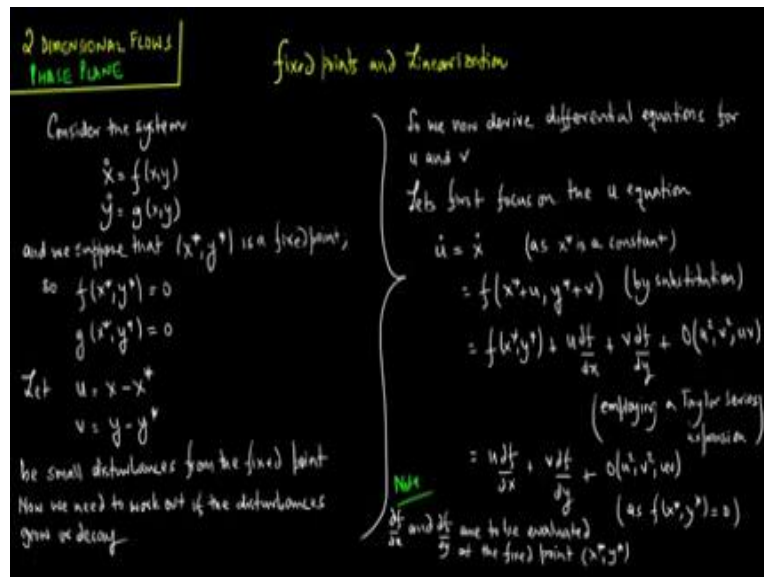 2 DIMENSIONAL FLOWS
PHASE PLANE
fixed points and Linearization
Consider the system
ẋ = f(x,y)
ẏ = g(x,y)
and we suppose that (x*,y*) is a fixed point,
so f(x*,y*) = 0
g(x*,y*) = 0
Let u = x - x*
v = y - y*
be small disturbances from the fixed point
Now we need to work out if the disturbances
grow or decay
So we now derive differential equations for
u and v
Lets first focus on the u equation
u̇ = ẋ (as x* is a constant)
= f(x*+u, y*+v) (by substitution)
= f(x*,y*) + u ∂f/∂x + v ∂f/∂y + O(u², v², uv)
(employing a Taylor series
expansion)
= u ∂f/∂x + v ∂f/∂y + O(u², v², uv)
(as f(x*,y*) = 0)
Note
∂f/∂x and ∂f/∂y are to be evaluated
at the fixed point (x*,y*)